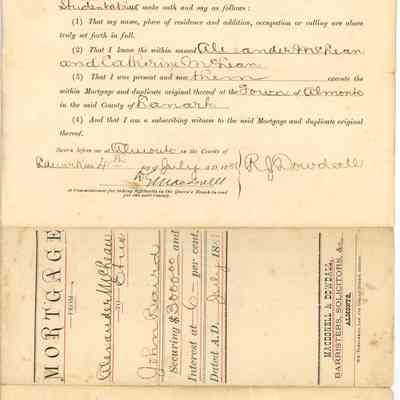 Student at law made oath and say as follows :
(1) That my name, place of residence and addition, occupation or calling are above
truly set forth in full.
(2) That I know the within named Alexander McLean
and Catherine McLean
(3) That I was present and saw them execute the
within Mortgage and duplicate original thereof at the Town of Almonte
in the said County of Lanark
(4) And that I am a subscribing witness to the said Mortgage and duplicate original
thereof.
Sworn before me at Almonte in the County of
Lanark this 4th day July A.D. 188
R J Dowdall
Macdonell
A Commissioner for taking Affidavits in the Queen's Bench in and
for the said County.
MORTGAGE
FROM
Alexander McLean
TO
John Baird
Securing $3000.00 and
Interest at 6 per cent.
Dated A.D. July 188
MACDONELL & DOWDALL,
BARRISTERS, SOLICITORS, &c.
ALMONTE.